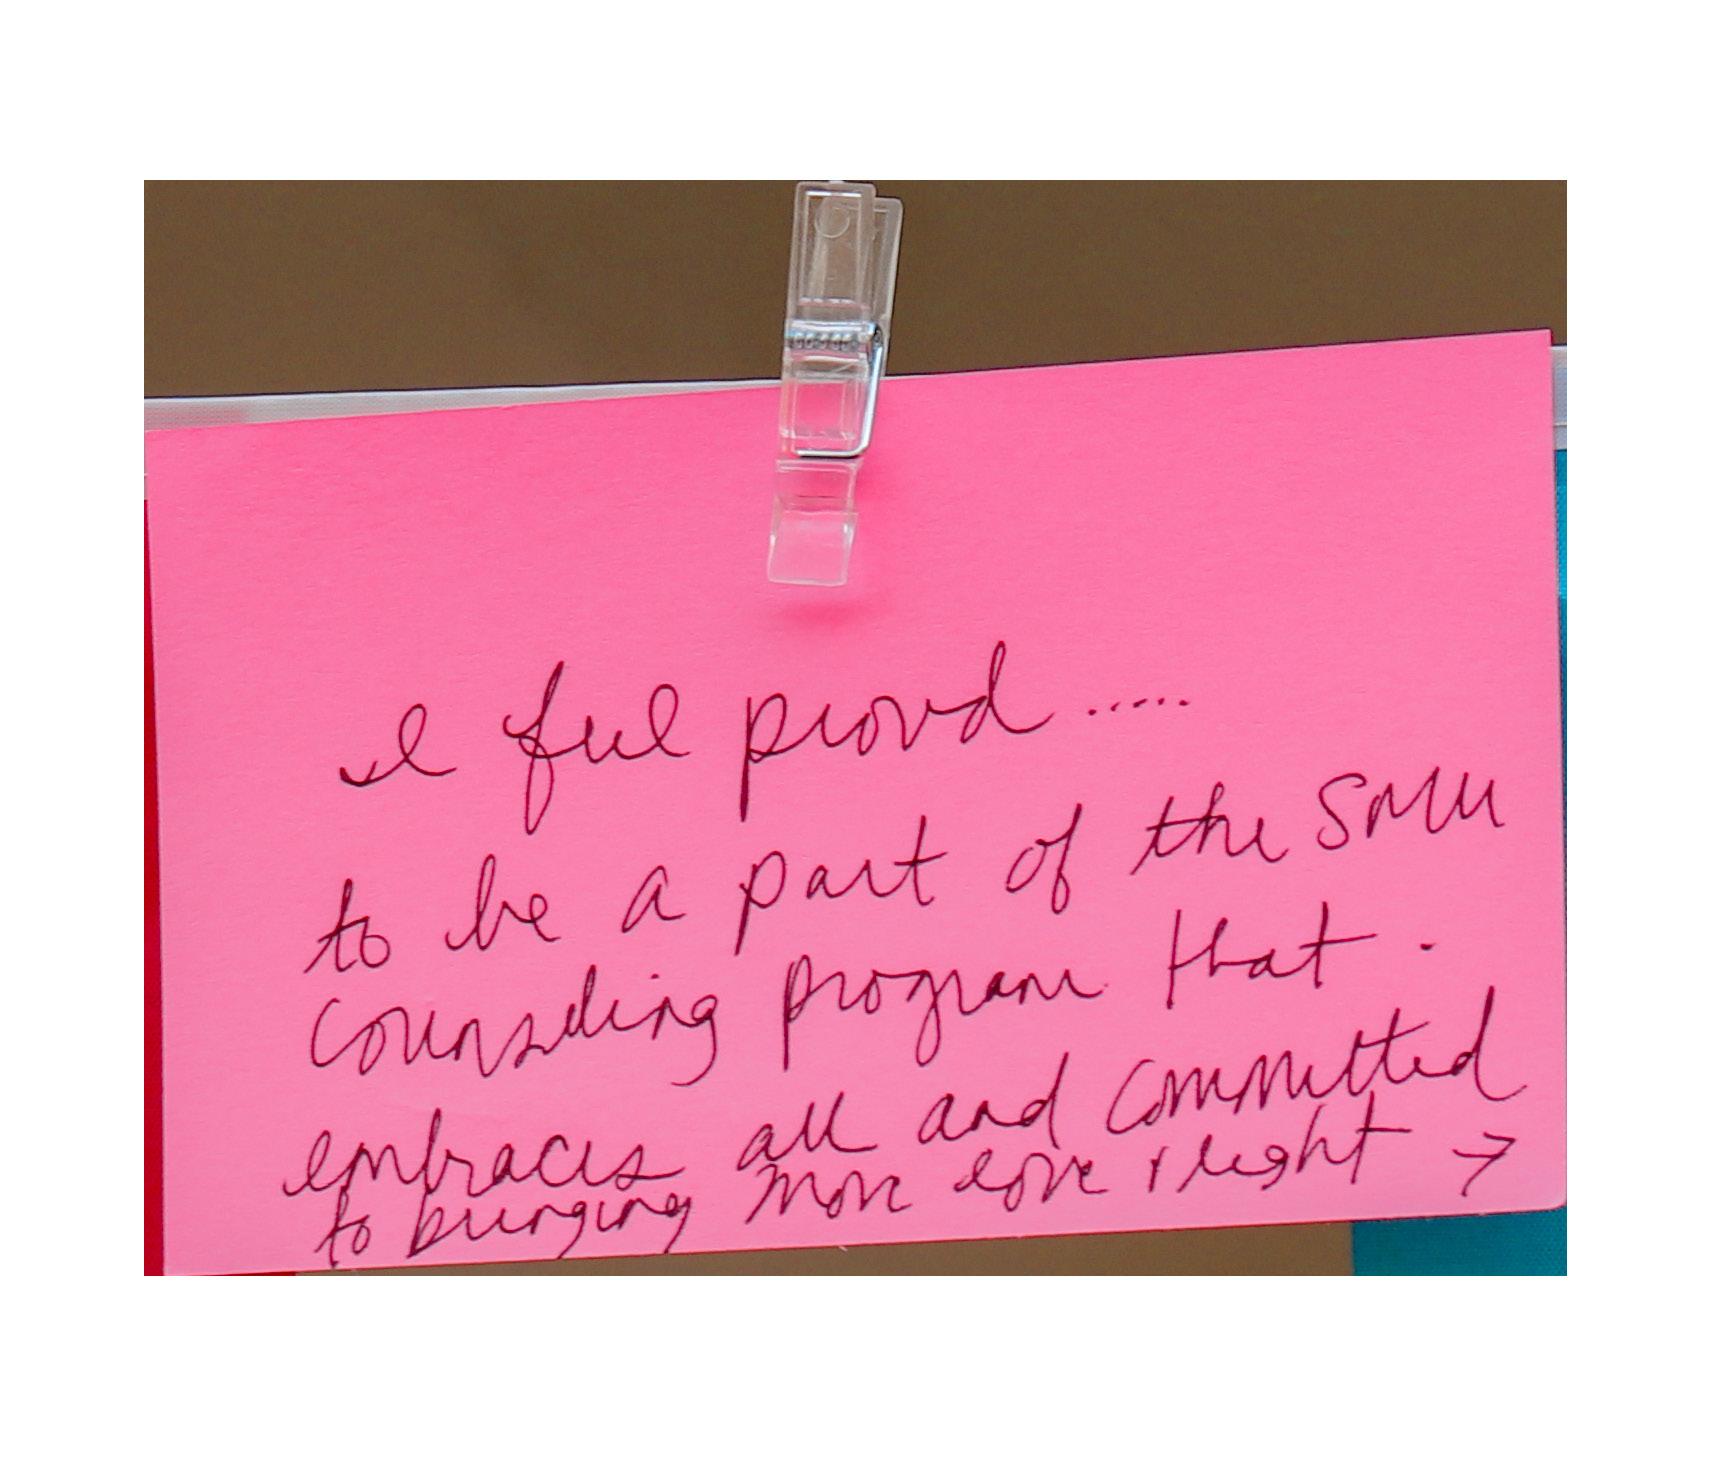 I feel proud.....
to be a part of the SMU
Counseling program that.
embraces all and committed
to bringing more love + light →